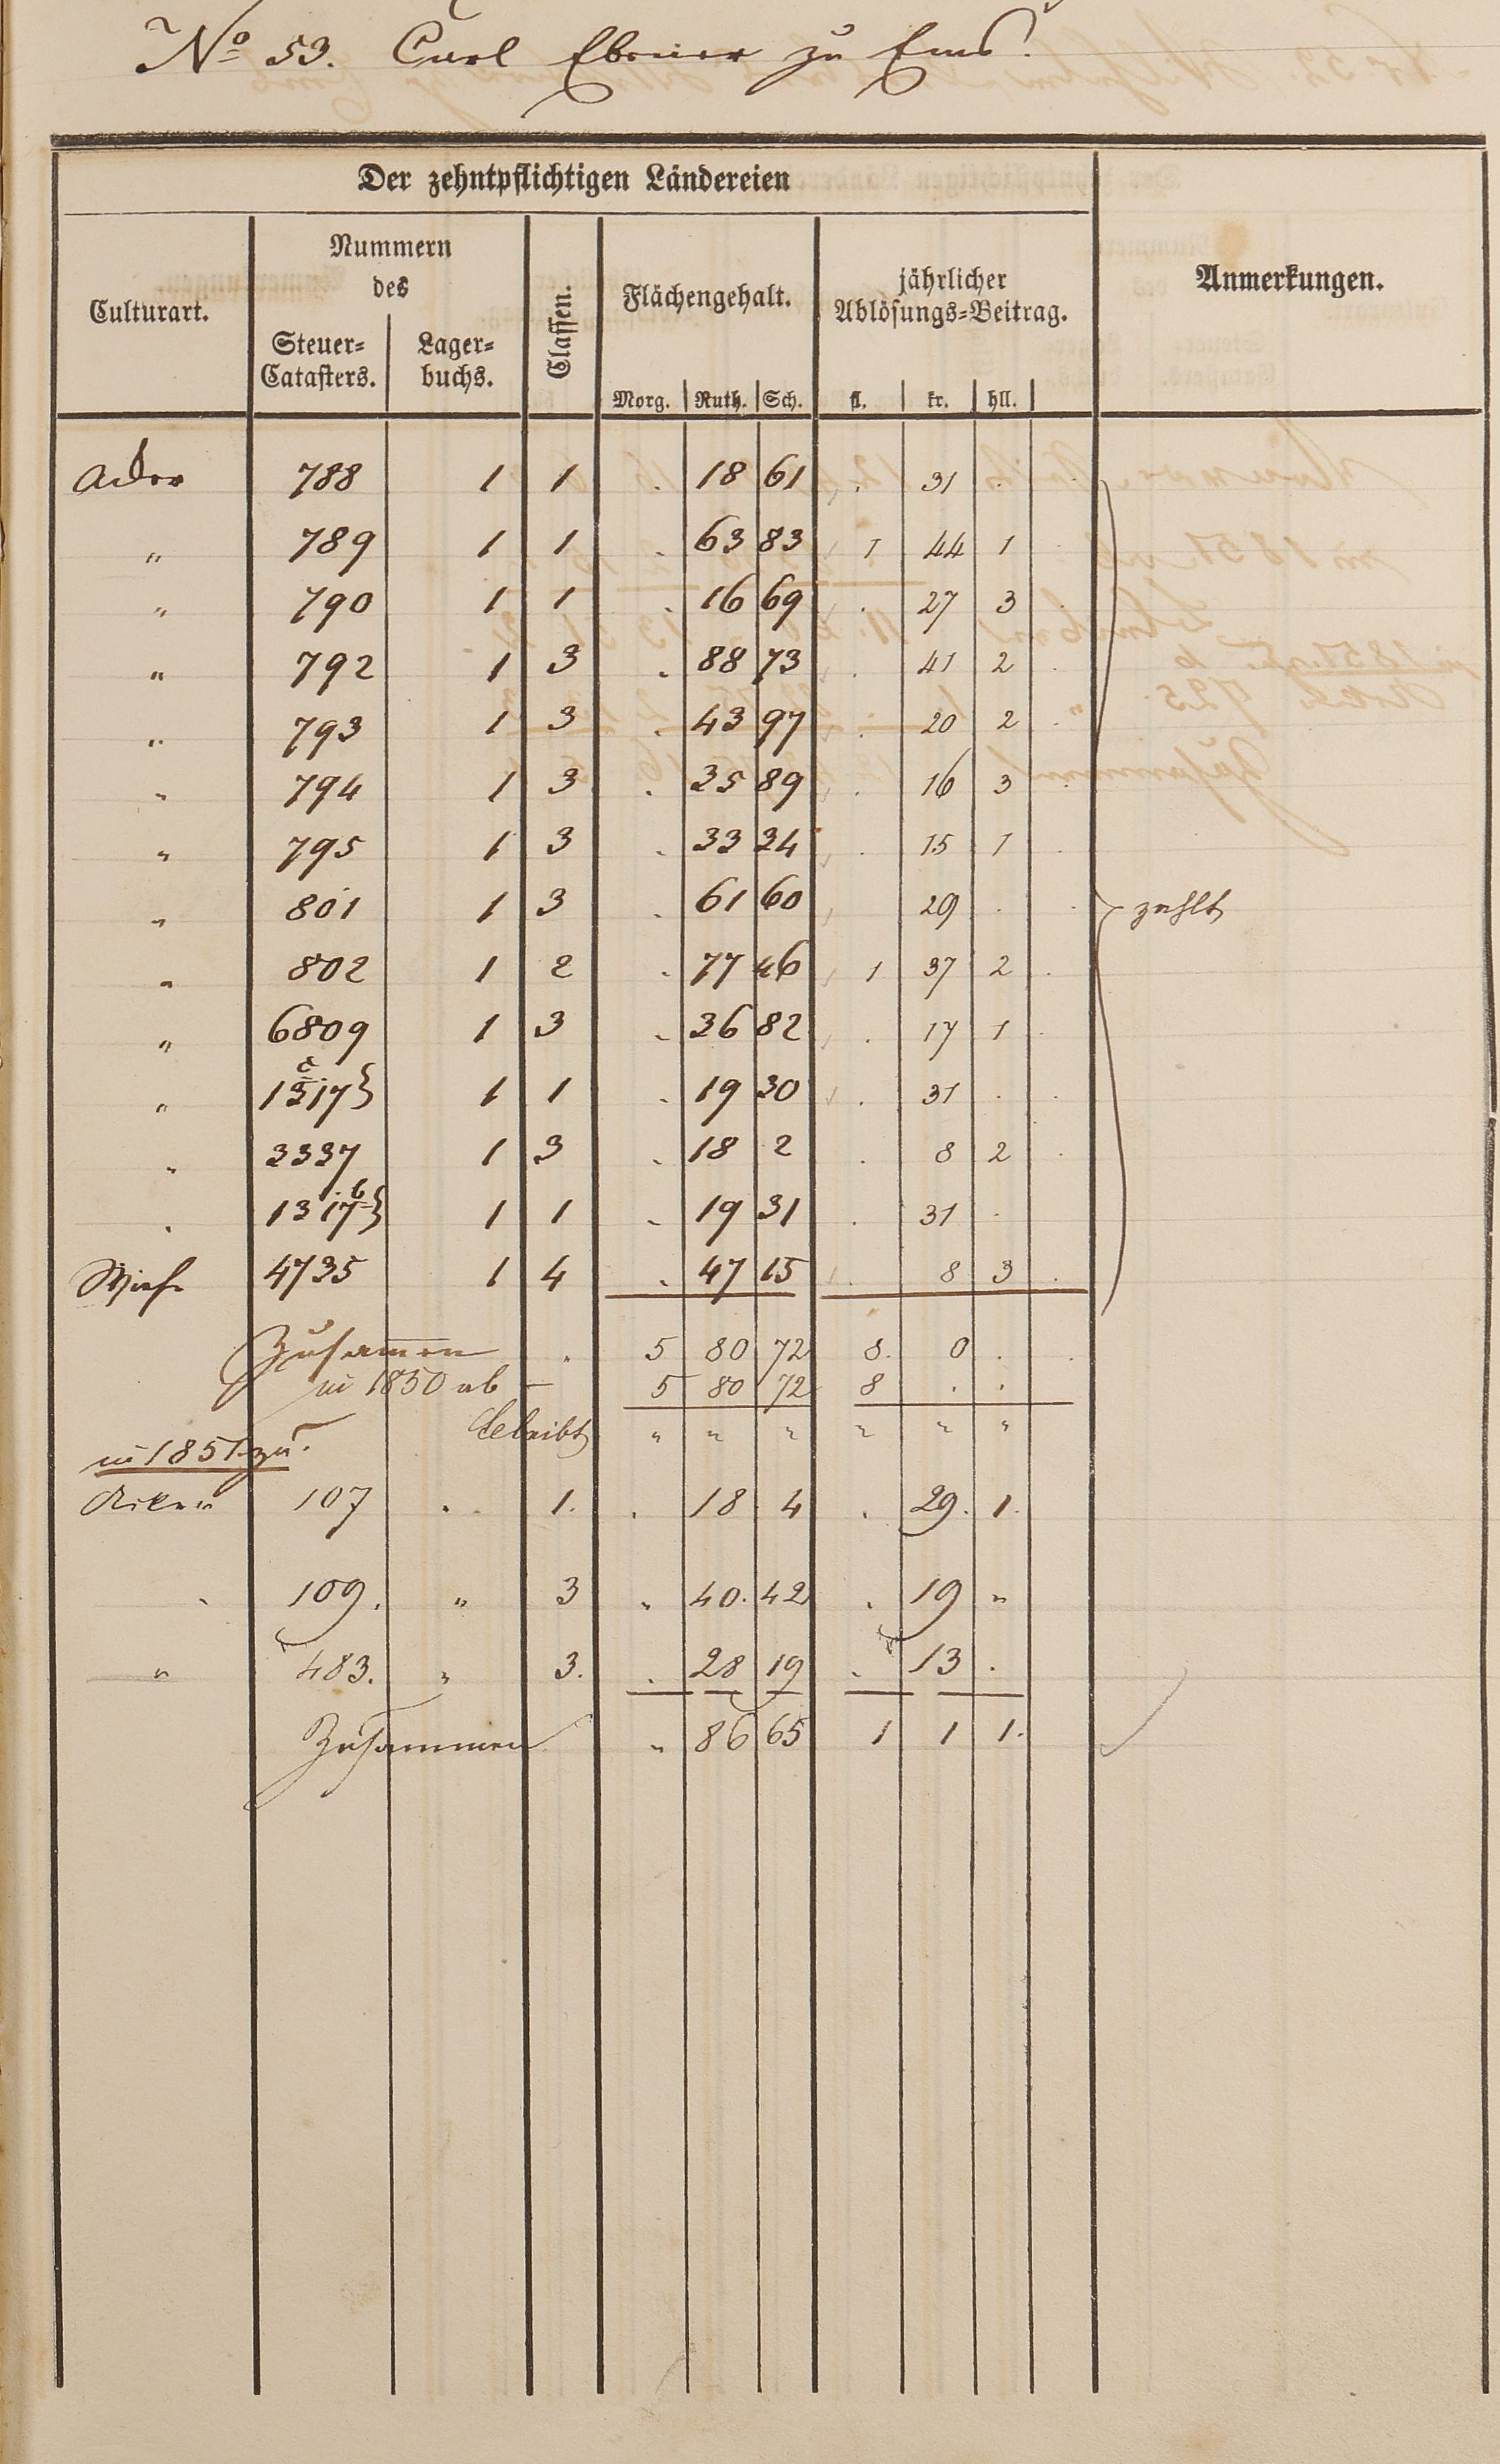 No 53. Carl Ebener zu Ems.
Der zehntpflichtigen Ländereien
Culturart. Nummern des Steuer-Catasters. Lager-buchs. Classen. Flächengehalt. jährlicher Ablösungs-Beitrag. Anmerkungen.
Morg. Ruth. Sch. fl. kr. hll.
Acker 788 1 1 . 18 61 . 31 .
" 789 1 1 . 63 83 1 44 1
" 790 1 1 . 16 69 . 27 3
" 792 1 3 . 88 73 . 41 2
" 793 1 3 . 43 97 . 20 2
" 794 1 3 . 35 89 . 16 3
" 795 1 3 . 33 34 . 15 1
" 801 1 3 . 61 60 29 . zahlt
" 802 1 2 . 77 46 1 37 2
" 6809 1 3 . 36 82 . 17 1
" 1317 c 1 1 . 19 30 . 31 .
" 3337 1 3 . 18 2 . 8 2
. 1317 b 1 1 . 19 31 . 31 .
Wiese 4735 1 4 . 47 15 . 8 3
Zusamen . 5 80 72 8. 0 .
in 1850 ab — 5 80 72 8 . .
bleibt " " " " " "
in 1851 zu.
Acker 107 . 1. . 18 4 . 29. 1.
. 109. " 3 " 40. 42 . 19 "
" 483. " 3. . 28 19 . 13 .
Zusammen " 86 65 1 1 1.